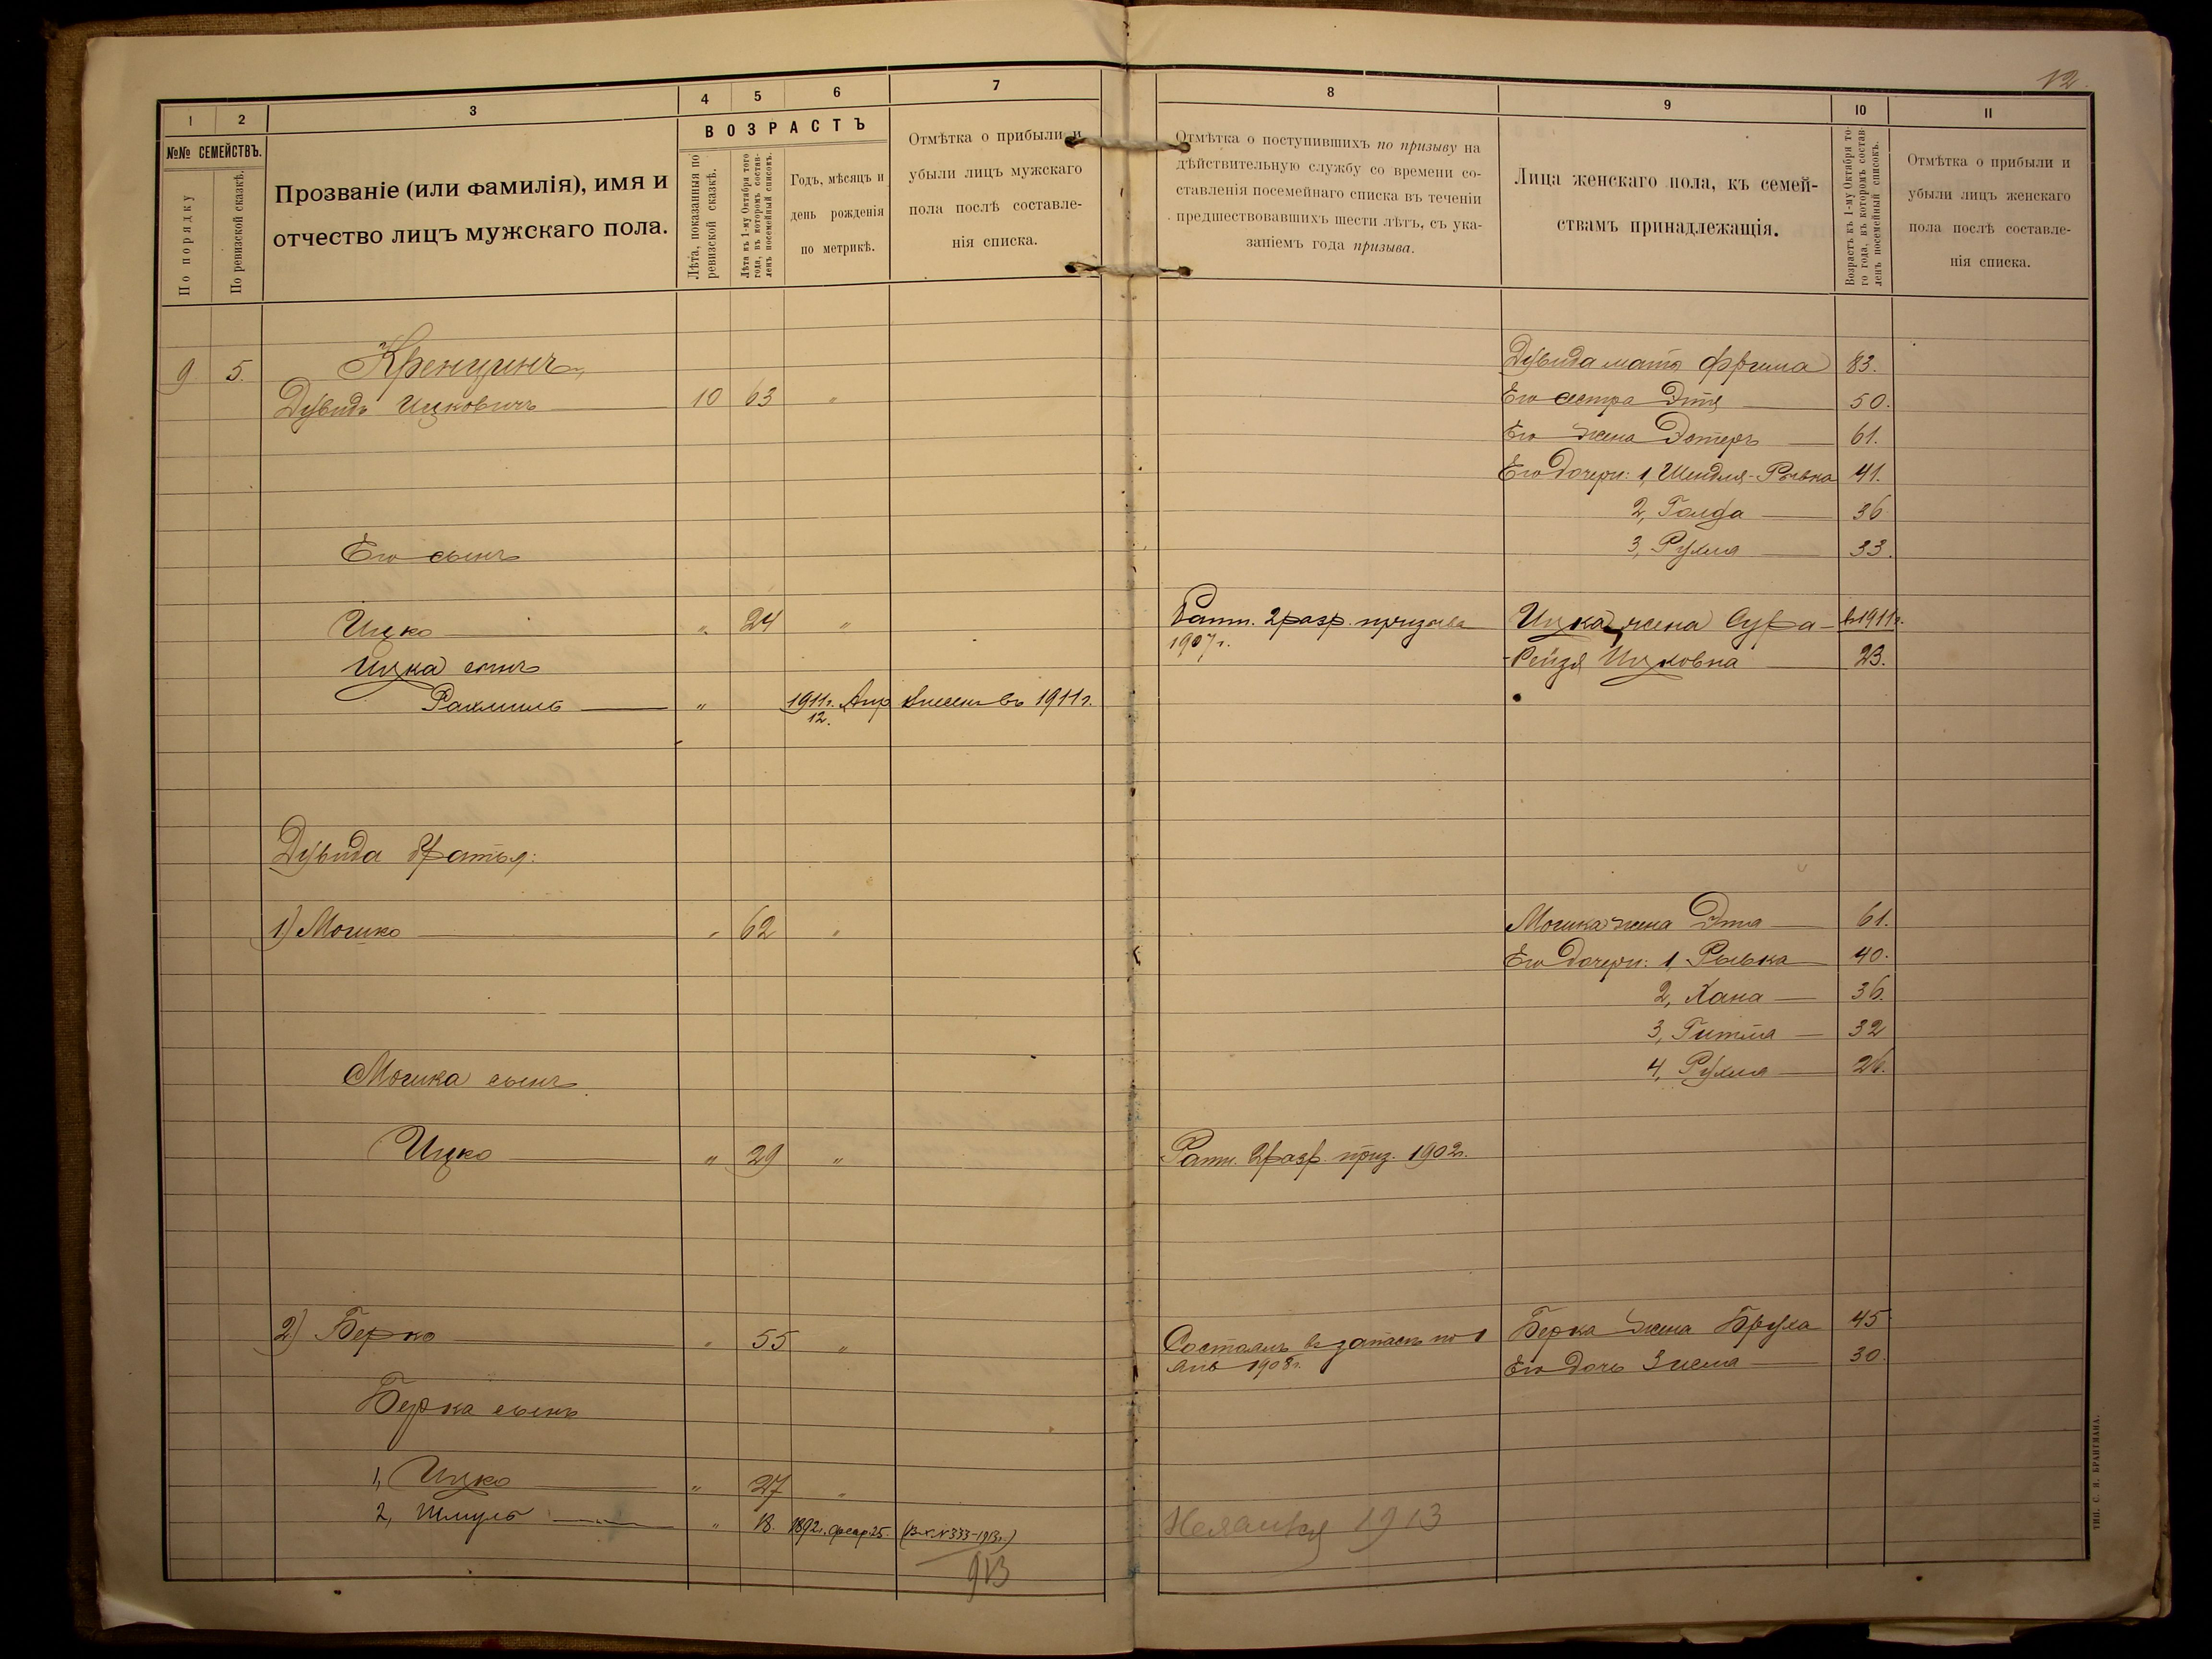 12.
1
2
3
4
5
6
7
№№ СЕМЕЙСТВЪ.
По порядку
По ревизской сказкѣ.
Прозваніе (или фамилія), имя и
отчество лицъ мужскаго пола.
ВОЗРАСТЪ
Лѣта, показанныя по
ревизской сказкѣ.
Лѣта къ 1-му Октября того
года, въ которомъ состав-
ленъ посемейный списокъ.
Годъ, мѣсяцъ и
день рожденія
по метрикѣ.
Отмѣтка о прибыли и
убыли лицъ мужскаго
пола послѣ составле-
нія списка.
9 5.
Дувидъ Ицковичъ 10 63 "
Его сынъ
Ицко " 24 "
Ицка сынъ
Рахмиль " 1911г. Апр 12. внесенъ въ 1911г.
Дувида братья:
1) Мошко " 62 "
Мошка сынъ
Ицко " 29 "
2) Берко " 55 "
Берка сынъ
1, Ицко " 27 "
2, Шмуль " 18. 1892г. 25. №333-1913г.)
913
8
9
10
11
Отмѣтка о поступившихъ по призыву на
дѣйствительную службу со времени со-
ставленія посемейнаго списка въ теченіи
предшествовавшихъ шести лѣтъ, съ ука-
заніемъ года призыва.
Лица женскаго пола, къ семей-
ствамъ принадлежащія.
Возрастъ къ 1-му Октября то-
го года, въ которомъ состав-
ленъ посемейный списокъ.
Отмѣтка о прибыли и
убыли лицъ женскаго
пола послѣ составле-
нія списка.
Дувида мать Фрума 83.
Его сестра Этя 50.
Его жена Эстеръ 61.
Его дочери: 1, Шендля-Рывка 41.
2, Голда 36
3, Рухля 33.
Ратн. 2 разр. призыва
1907г.
Ицка жена Сура- в 1911г.
Рейзя Ицковна 23.
Мошка жена Этя 61.
Его дочери: 1, Рывка 40.
2, Хана 36.
3, Гитля 32
4, Рухля 26.
Ратн. 2 разр. приз. 1902г.
Состоялъ въ запасѣ по 1
Янв 1908г.
Берка жена Бруха 45
Его дочь Злема 30.
1913
ТИП. С. Я. БРАНТМАНА.